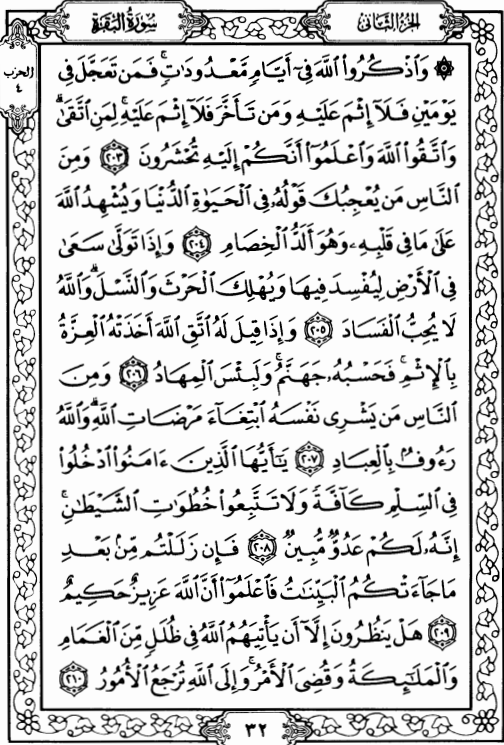 الجزء الثانى
سورة البقرة
الحزب
٤
۞ وَاذْكُرُوا اللَّهَ فِي أَيَّامٍ مَّعْدُودَاتٍ ۚ فَمَن تَعَجَّلَ فِي
يَوْمَيْنِ فَلَا إِثْمَ عَلَيْهِ وَمَن تَأَخَّرَ فَلَا إِثْمَ عَلَيْهِ ۚ لِمَنِ اتَّقَىٰ ۗ
وَاتَّقُوا اللَّهَ وَاعْلَمُوا أَنَّكُمْ إِلَيْهِ تُحْشَرُونَ ٢٠٣ وَمِنَ
النَّاسِ مَن يُعْجِبُكَ قَوْلُهُ فِي الْحَيَوٰةِ الدُّنْيَا وَيُشْهِدُ اللَّهَ
عَلَىٰ مَا فِي قَلْبِهِ وَهُوَ أَلَدُّ الْخِصَامِ ٢٠٤ وَإِذَا تَوَلَّىٰ سَعَىٰ
فِي الْأَرْضِ لِيُفْسِدَ فِيهَا وَيُهْلِكَ الْحَرْثَ وَالنَّسْلَ ۗ وَاللَّهُ
لَا يُحِبُّ الْفَسَادَ ٢٠٥ وَإِذَا قِيلَ لَهُ اتَّقِ اللَّهَ أَخَذَتْهُ الْعِزَّةُ
بِالْإِثْمِ ۚ فَحَسْبُهُ جَهَنَّمُ ۚ وَلَبِئْسَ الْمِهَادُ ٢٠٦ وَمِنَ
النَّاسِ مَن يَشْرِي نَفْسَهُ ابْتِغَاءَ مَرْضَاتِ اللَّهِ ۗ وَاللَّهُ
رَءُوفٌ بِالْعِبَادِ ٢٠٧ يَٰأَيُّهَا الَّذِينَ ءَامَنُوا ادْخُلُوا
فِي السِّلْمِ كَافَّةً وَلَا تَتَّبِعُوا خُطُوَٰتِ الشَّيْطَٰنِ ۚ
إِنَّهُ لَكُمْ عَدُوٌّ مُّبِينٌ ٢٠٨ فَإِن زَلَلْتُم مِّن بَعْدِ
مَا جَاءَتْكُمُ الْبَيِّنَٰتُ فَاعْلَمُوا أَنَّ اللَّهَ عَزِيزٌ حَكِيمٌ
٢٠٩ هَلْ يَنظُرُونَ إِلَّا أَن يَأْتِيَهُمُ اللَّهُ فِي ظُلَلٍ مِّنَ الْغَمَامِ
وَالْمَلَٰئِكَةُ وَقُضِيَ الْأَمْرُ ۚ وَإِلَى اللَّهِ تُرْجَعُ الْأُمُورُ ٢١٠
٣٢